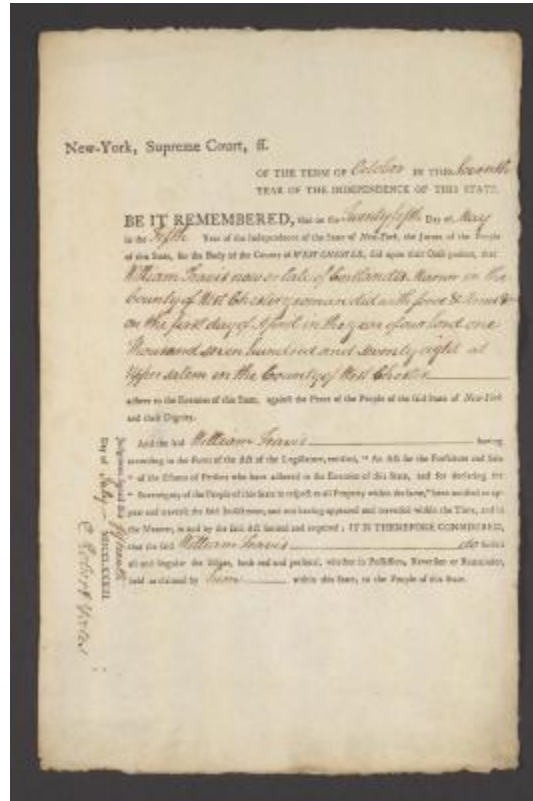 New-York, Supreme Court, ss.
OF THE TERM OF October IN THE Seventh
YEAR OF THE INDEPENDENCE OF THIS STATE.
BE IT REMEMBERED, that on the Twenty fifth Day of May
in the Fifth Year of the Independence of the State of New-York, the Jurors of the People
of this State, for the Body of the County of WEST-CHESTER, did upon their Oath present, that
William Travis now or late of Cortlandts Manor in the
County of West Chester yeoman did with force & Arms &c
on the first day of April in the year of our lord one
Thousand seven hundred and seventy eight at
Upper salem in the County of West Chester
adhere to the Enemies of this State, against the Peace of the People of the said State of New-York
and their Dignity.
And the said William Travis having
according to the Form of the Act of the Legislature, entitled, " An Act for the Forfeiture and Sale
" of the Estates of Persons who have adhered to the Enemies of this State, and for declaring the
" Sovereignty of the People of this State in respect to all Property within the same," been notified to ap-
pear and traverse the said Indictment, and not having appeared and traversed within the Time, and in
the Manner, in and by the said Act limited and required; IT IS THEREFORE CONSIDERED,
that the said William Travis do forfeit
all and singular the Estate, both real and personal, whether in Possession, Reversion or Remainder,
held or claimed by him within this State, to the People of this State.
Judgment signed this fifteenth
Day of July MDCCLXXXIII.
Robert Yates